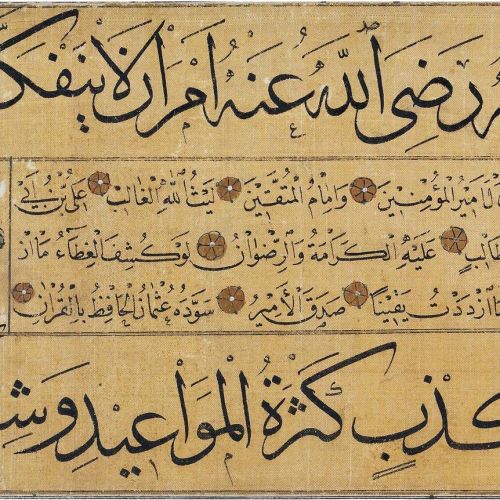 رضي الله عنه امران لا ينفك
لامير المؤمنين وامام المتقين ليث الله الغالب علي بن ابي
طالب عليه الكرامة والرضوان لو كشف الغطاء ما از
ما ازددت يقينا صدق الامير سوده عثمان الحافظ بالقران
كذب كثرة المواعيد وش